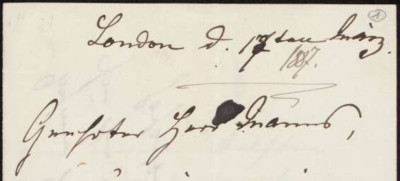 London d. 17ten März
1887.
Geehrter Herr Manns,